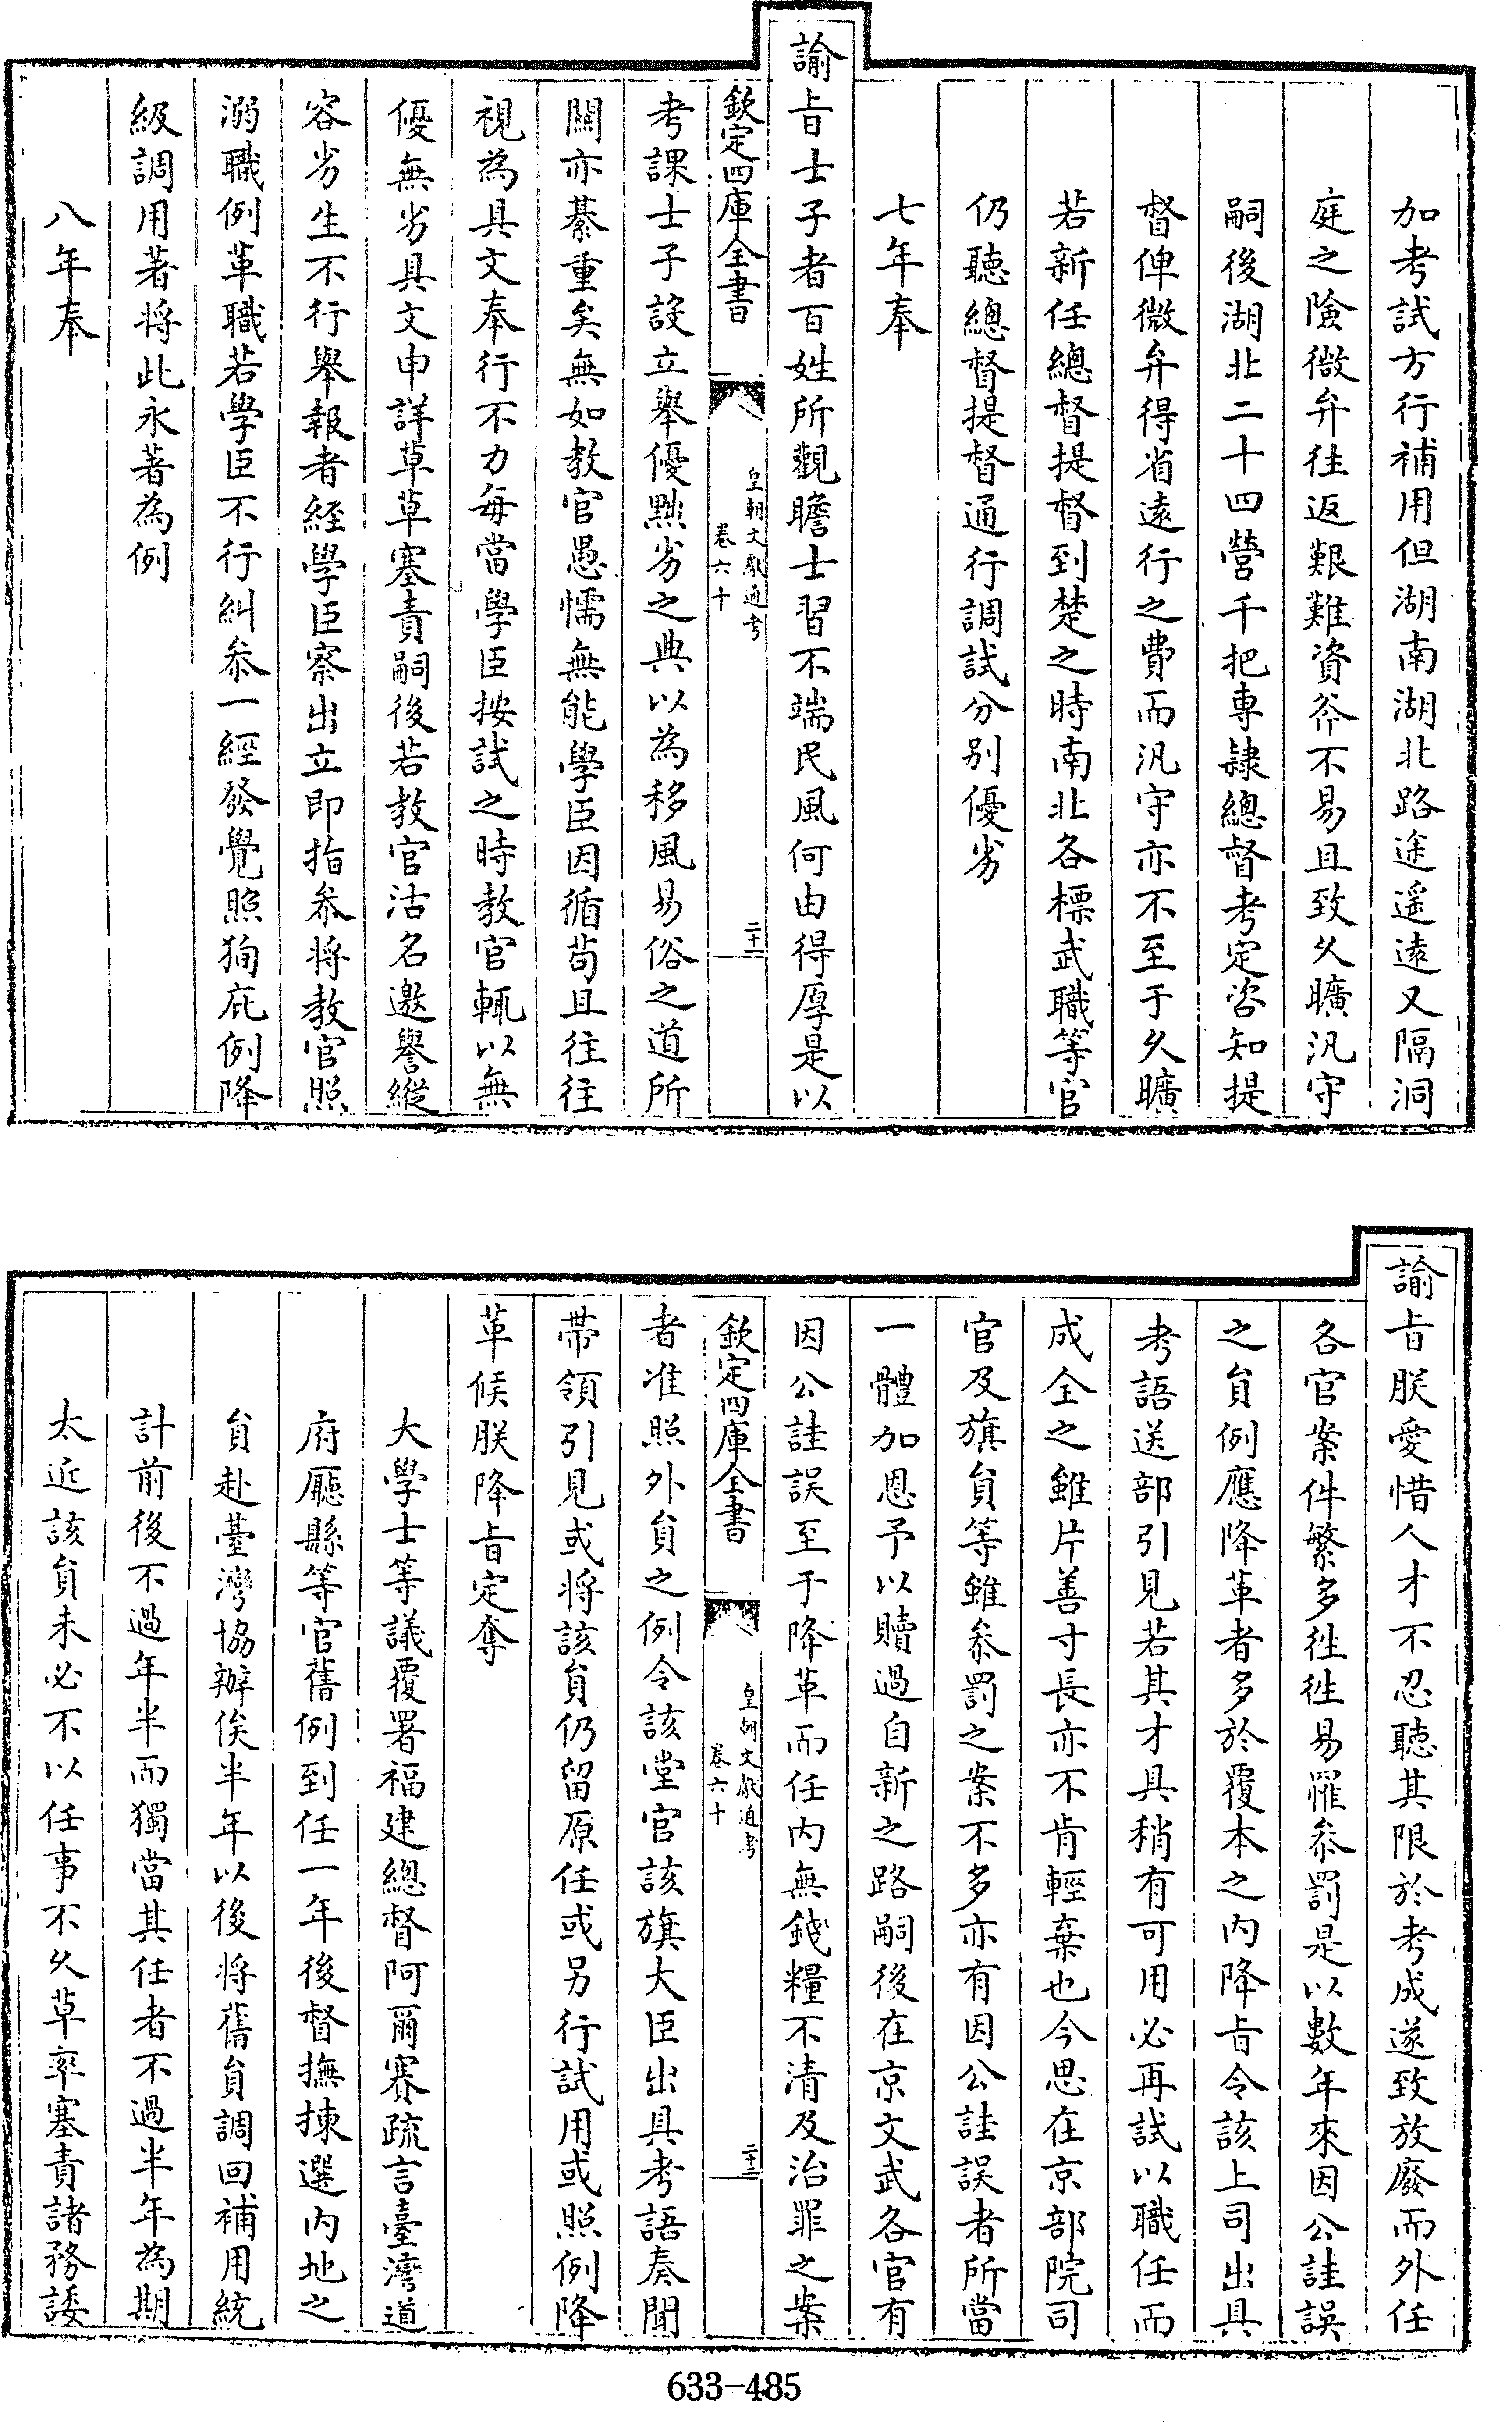 加考試方行補用但湖南湖北路途遥遠又隔洞
庭之險微弁往返艱難資斧不易且致久曠汛守
嗣後湖北二十四營千把專隷總督考定咨知提
督俾微弁得省遠行之費而汛守亦不至于久曠
若新任總督提督到楚之時南北各標武職等官
仍聽總督提督通行調試分别優劣
七年奉
諭旨士子者百姓所觀瞻士習不端民風何由得厚是以
欽定四庫全書
皇朝文獻通考
卷六十
二十一
考課士子設立舉優黜劣之典以為移風易俗之道所
關亦綦重矣無如教官愚懦無能學臣因循茍且往往
視為具文奉行不力每當學臣按試之時教官輒以無
優無劣具文申詳草草塞責嗣後若教官沽名邀譽縱
容劣生不行舉報者經學臣察出立即指叅將教官照
溺職例革職若學臣不行糾叅一經發覺照狥庇例降
級調用著將此永著為例
八年奉
諭旨朕愛惜人才不忍聽其限於考成遂致放廢而外任
各官案件繁多徃徃易罹叅罰是以數年來因公詿誤
之員例應降革者多於覆本之内降旨令該上司出具
考語送部引見若其才具稍有可用必再試以職任而
成全之雖片善寸長亦不肯輕棄也今思在京部院司
官及旗員等雖叅罰之案不多亦有因公詿誤者所當
一體加恩予以贖過自新之路嗣後在京文武各官有
因公詿誤至于降革而任内無錢糧不清及治罪之案
欽定四庫全書
皇朝文獻通考
卷六十
二十二
者准照外員之例令該堂官該旗大臣出具考語奏聞
帶領引見或將該員仍留原任或另行試用或照例降
革候朕降旨定奪
大學士等議覆署福建總督阿爾賽疏言臺灣道
府廳縣等官舊例到任一年後督撫揀選内地之
員赴臺灣協辦俟半年以後將舊員調回補用統
計前後不過年半而獨當其任者不過半年為期
太近該員未必不以任事不久草率塞責諸務諉
633-485